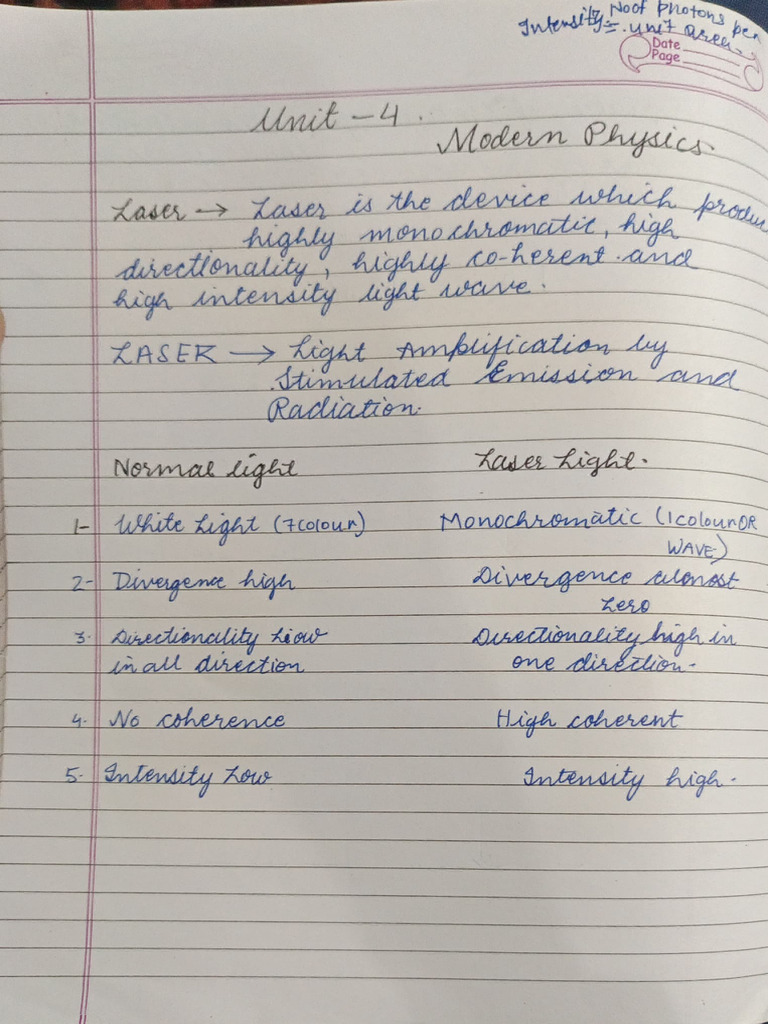 No of photons per
Intensity = unit area.
Date
Page
Unit - 4.
Modern Physics.
Laser → Laser is the device which produc
highly monochromatic, high
directionality, highly co-herent and
high intensity light wave.
LASER → Light Amplification by
Stimulated Emission and
Radiation.
Normal light Laser Light.
1- White Light (7colour) Monochromatic (1colour OR
WAVE)
2- Divergence high Divergence almost
Zero
3- Directionality Low Directionality high in
in all direction one direction.
4- No coherence High coherent
5- Intensity Low Intensity high.